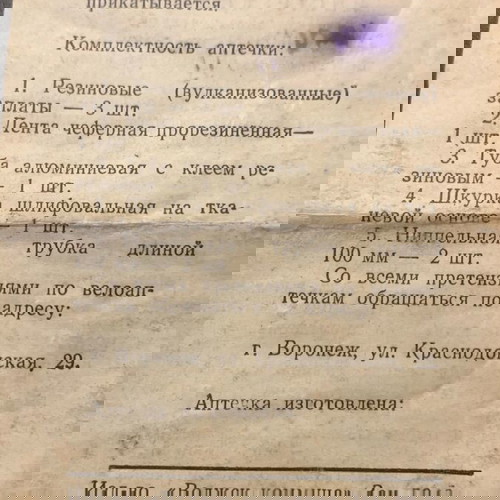 прикатывается.
Комплектность аптечки:
1. Резиновые (вулканизованные)
заплаты — 3 шт.
2. Лента чеферная прорезиненная —
1 шт.
3. Туба алюминиевая с клеем ре-
зиновым — 1 шт.
4. Шкурка шлифовальная на тка-
невой основе — 1 шт.
5. Ниппельная трубка длиной
100 мм — 2 шт.
Со всеми претензиями по велоап-
течкам обращаться по адресу:
г. Воронеж, ул. Краснодонская, 29.
Аптечка изготовлена: